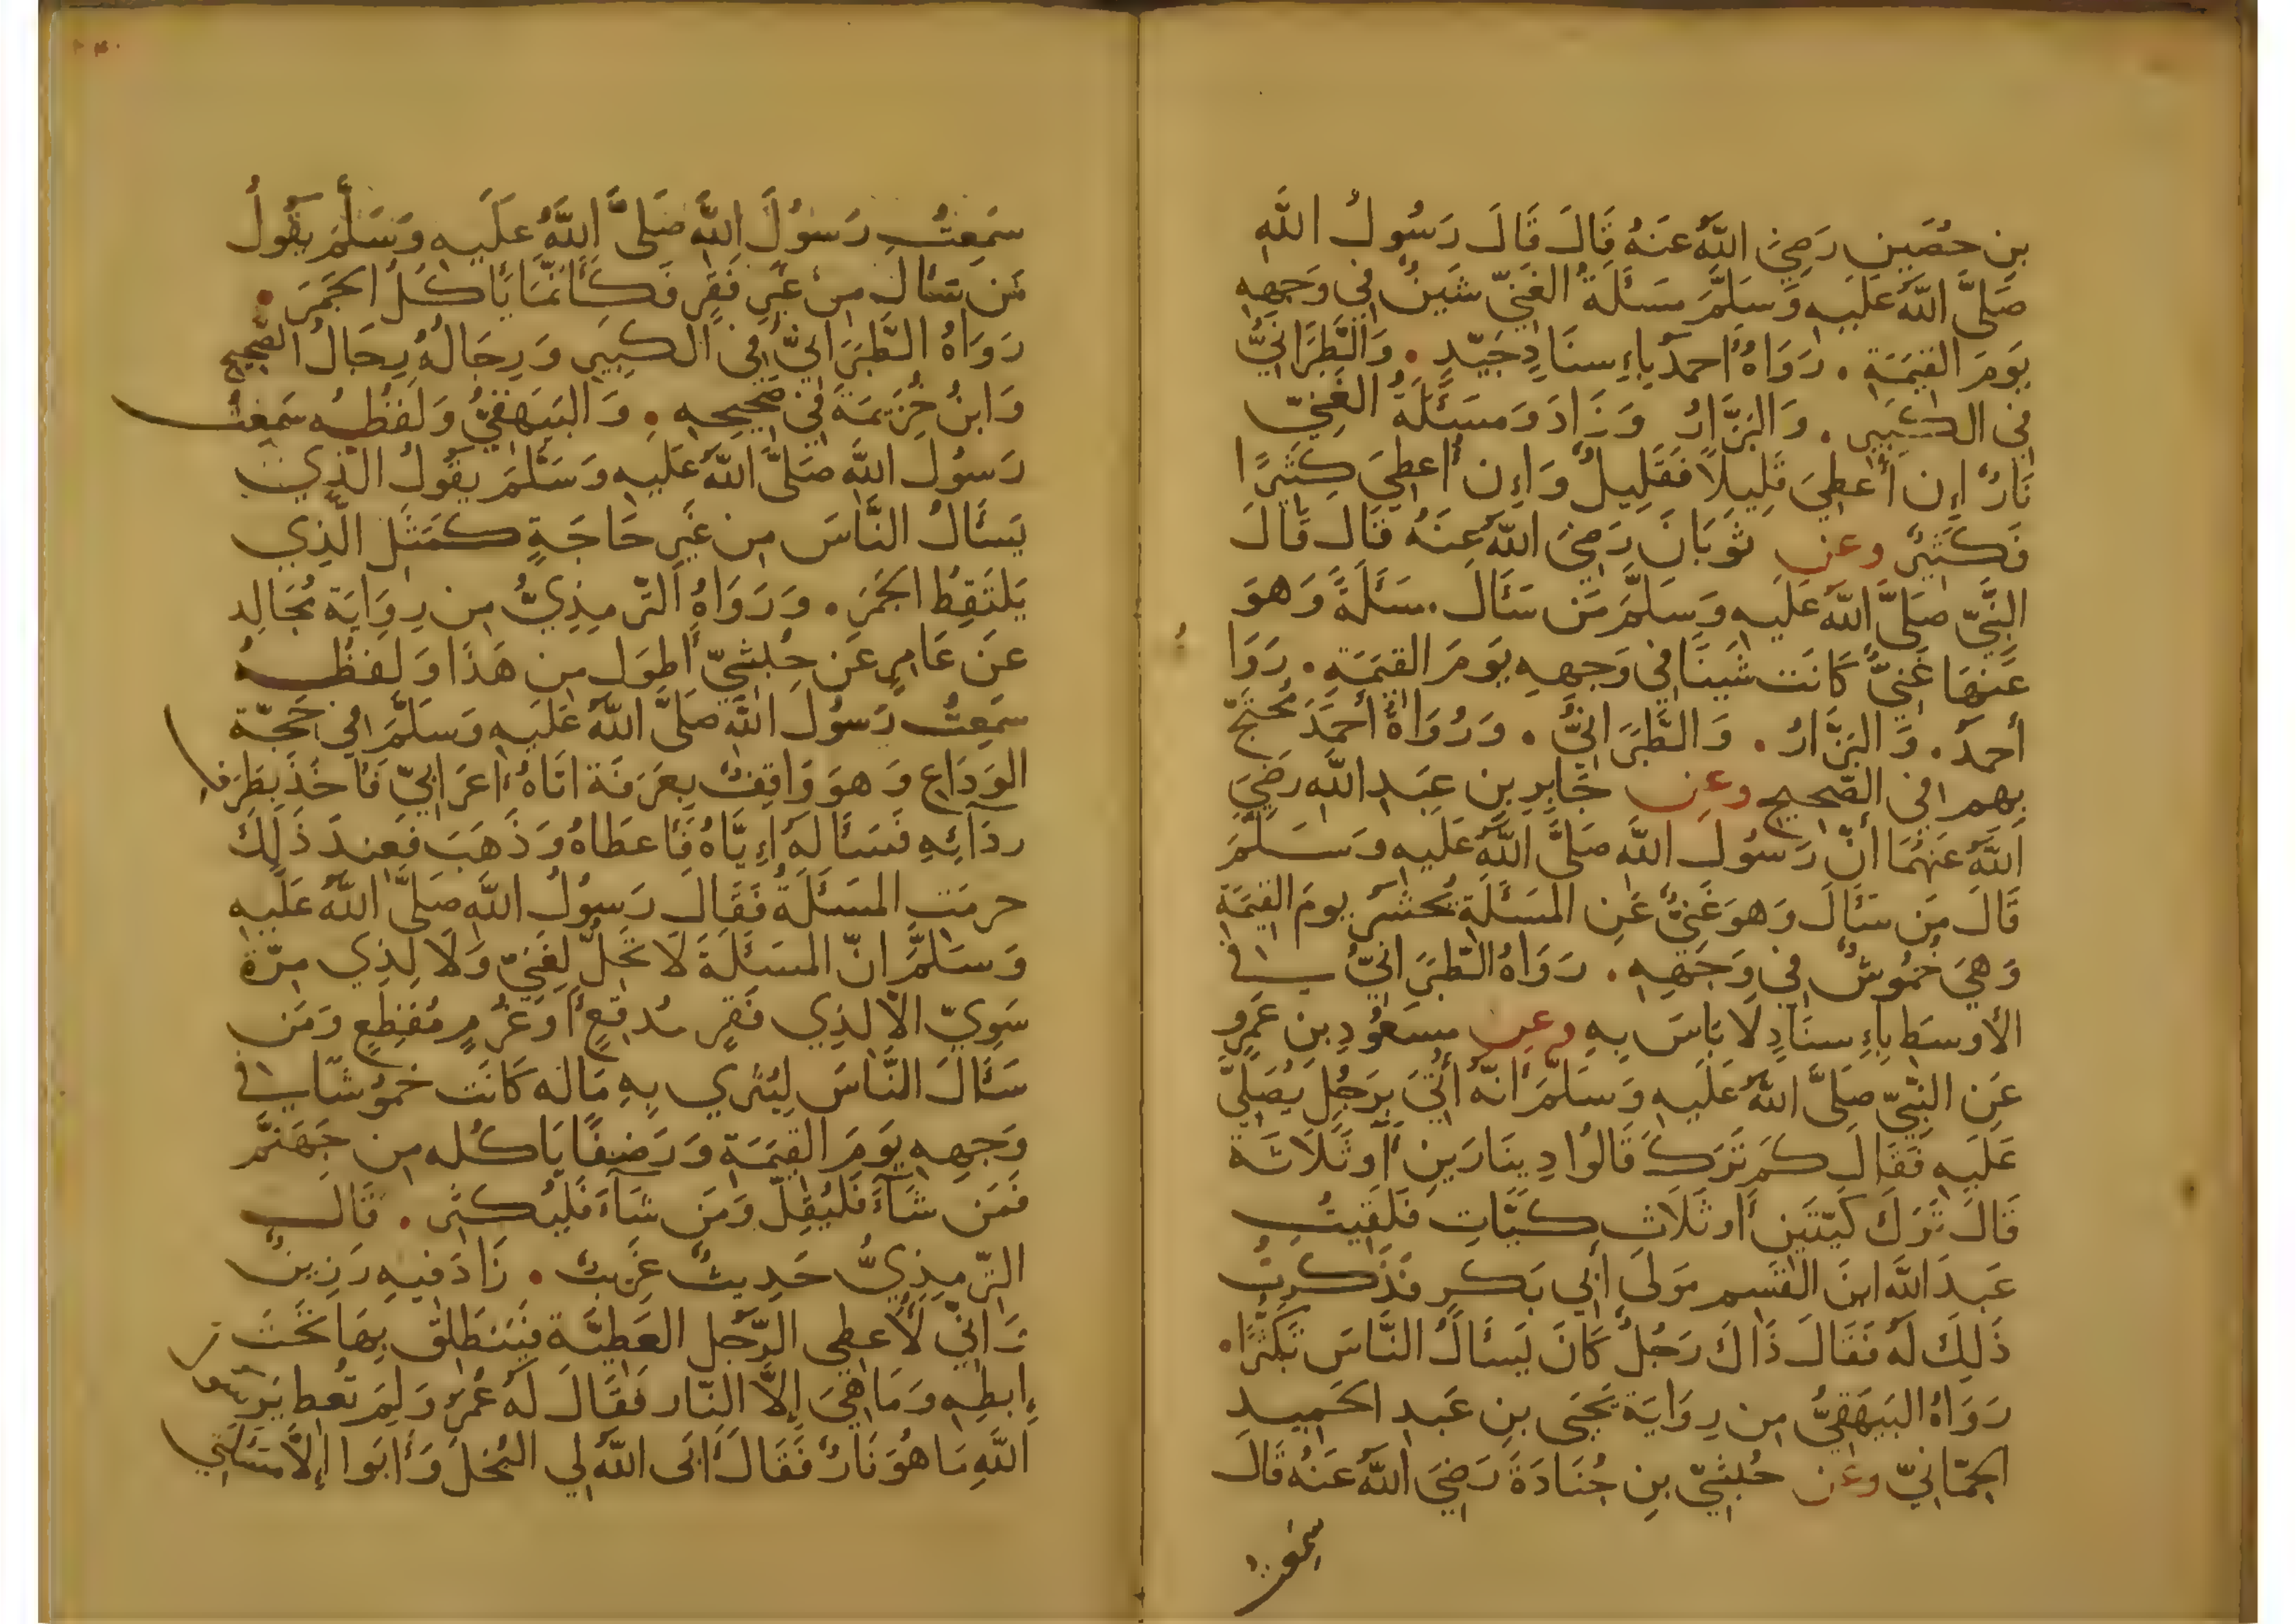 بِن حُصَينٍ رَضِيَ اللَّهُ عَنهُ قَالَ قَالَ رَسُولُ اللهِ
صَلَّى اللَّهُ عَلَيهِ وَسَلَّمَ مَسئَلَةُ الغَنِيِّ شَينٌ فِي وَجهِهِ
يَومَ القِيٰمَةِ . رَوَاهُ احمدُ بِاءِسنَادٍ جَيّدٍ . وَالطَّبَرَانِيُّ
فِي الكَبِيرِ . وَالبَزَّارُ وَزَادَ وَمَسئَلَةُ الغَنِيِّ
نَارٌ إِن أُعطِيَ قَلِيلًا فَقَلِيلٌ وَإِن أُعطِيَ كَثِيرًا
فَكَثِيرٌ وعن ثَوبَانَ رَضِيَ اللَّهُ عَنهُ قَالَ قَالَ
النَّبِيّ صَلَّى اللَّهُ عَلَيهِ وَسَلَّمَ مَن سَئَالَ مسَئَلَةً وَهوَ
عَنهَا غَنِيٌّ كَانَت شَينًا فِي وَجهِهِ يَومَ القِيٰمَةِ . رَوَا
أحمدُ . وَالبَزَّارُ . وَالطَّبَرَانِيُّ . وَرُوَاةُ أحمَدَ مُحتَجّ
بِهِم فِي الصَّحِيحِ وعن جَابِرِ بنِ عَبدِ اللَّهِ رَضِيَ
اللَّهُ عَنهُمَا أنّ رَسُولَ اللَّهِ صَلَّى اللَّهُ عَلَيهِ وَسَلَّمَ
قَالَ مَن سَئَالَ وَهوَ غَنِيٌّ عَنِ المَسئَلَةِ يُحشَرُ يومَ القِيٰمَةِ
وَهِيَ خُمُوشٌ فِي وَجهِهِ . رَوَاهُ الطَّبَرَانِيُّ في
الأوسَطِ بِاءِسنَادٍ لَا بَاسَ بِهِ وعن مسعُودِ بنِ عَمرٍو
عَنِ النَّبِيّ صَلَّى اللَّهُ عَلَيهِ وَسَلَّمَ أنّهُ أُتِيَ بِرَجُلٍ يُصَلِّيَ
عَلَيهِ فَقَالَ كَم تَرَكَ قَالُوا دِينَارَينِ أو ثَلَاثَةً
قَالَ تَرَكَ كَيَّتَينِ أو ثَلَاثَ كَيَّاتٍ فَلَقِيتُ
عَبدَ اللَّهِ ابنَ القٰسِمِ مَولَى أبِي بَكرٍ فَذَكَرتُ
ذٰلِكَ لَهُ فَقَالَ ذَاكَ رَجُلٌ كَانَ يَسئَالُ النَّاسَ تَكَثُّرًا .
رَوَاهُ البَيهَقِيُّ مِن رِوَايَةِ يَحيَى بنِ عَبدِ الحَمِيدِ
الحِمّانِيّ وعن حُبشِيّ بنِ جُنَادَةَ رَضِيَ اللَّهُ عَنهُ قَالَ
سَمِعتُ
سَمِعتُ رَسُولَ اللَّهِ صَلَّى اللَّهُ عَلَيهِ وَسَلَّمَ يَقُولُ
مَن سَئَالَ مِن غَيرِ فَقرٍ فَكَأنَّمَا يَأكُلُ الجَمرَ .
رَوَاهُ الطَّبَرَانِيُّ فِي الكَبِيرِ وَرِجَالُهُ رِجَالُ الصَّحِيحِ
وَابنُ خُزَيمَةَ فِي صَحِيحِهِ . وَالبَيهَقِيُّ وَلَفظُهُ سَمِعتُ
رَسُولَ اللَّهِ صَلَّى اللَّهُ عَلَيهِ وَسَلَّمَ يَقُولُ الَّذِي
يَسئَالُ النَّاسَ مِن غَيرِ حَاجَةٍ كَمَثَلِ الَّذِي
يَلتَقِطُ الجَمرَ . وَرَوَاهُ التّرمِذِيُّ مِن رِوَايَةِ مُجَالِدٍ
عَن عَامِرٍ عَن حُبشِيّ أطوَلَ مِن هَذَا وَلَفظُهُ
سَمِعتُ رَسُولَ اللَّهِ صَلَّى اللَّهُ عَلَيهِ وَسَلَّمَ فِي حَجّةِ
الوَدَاعِ وَهوَ وَاقِفٌ بِعَرَفَةَ اتَاهُ أعرَابِيّ فَأخَذَ بِطَرَفِ
رِدَآئِهِ فَسَئَالَهُ إِيَّاهُ فَأعطَاهُ وَذَهَبَ فَعِندَ ذٰلِكَ
حرمَتِ المَسئَلَةُ فَقَالَ رَسُولُ اللَّهِ صَلَّى اللَّهُ عَلَيهِ
وَسَلَّمَ انّ المَسئَلَةَ لَا تَحِلُّ لِغَنِيّ وَلَا لِذِي مِرّةٍ
سَوِيّ الّا لِذِي فَقرٍ مُدقِعٍ أو غُرمٍ مُفظِعٍ وَمَن
سَئَالَ النَّاسَ لِيُثرِي بِهِ مَالَه كَانَت خُمُوشًا في
وَجهِهِ يَومَ القِيٰمَةِ وَرَضفًا يَاكُله مِن جَهَنَّمَ
فَمَن شَآءَ فَليُقِلَّ وَمَن شَآءَ فَليُكثِر . قَالَ
التّرمِذِيُّ حَدِيثٌ غَرِيبٌ . زَادَ فِيهِ رَزِينٌ
وَانِّي لَأُعطِي الرَّجُلَ العَطِيَّةَ فَيَنطَلِقُ بِهَا تَحتَ
إِبطِهِ وَمَا هِيَ إِلَّا النّار فَقَالَ لَهُ عُمَرُ وَلِمَ تُعطِ يَرسو
اللَّهِ مَا هُوَ نَارٌ فَقَالَ أبَى اللَّهُ لِي البُخلَ وَأبَوا إلَّا مَسئَلَتِي